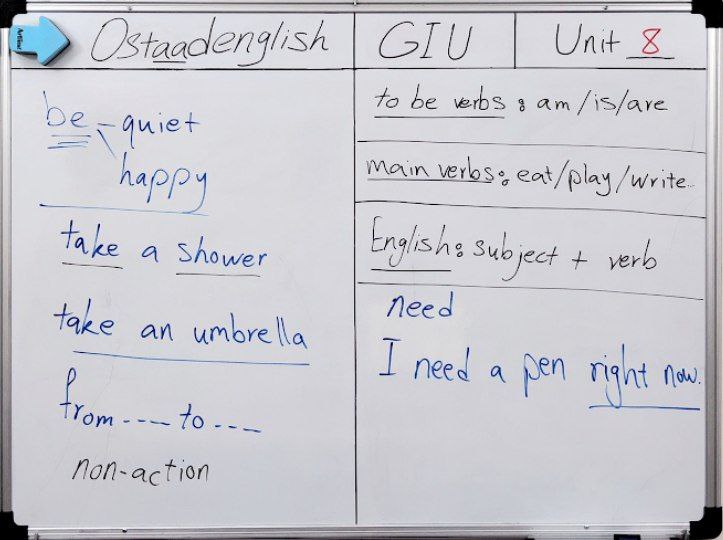 Ostaadenglish
GIU
Unit 8
be - quiet
happy
take a shower
take an umbrella
from ---- to ---
non-action
to be verbs : am/is/are
main verbs: eat/play/write..
English: subject + verb
need
I need a pen right now.